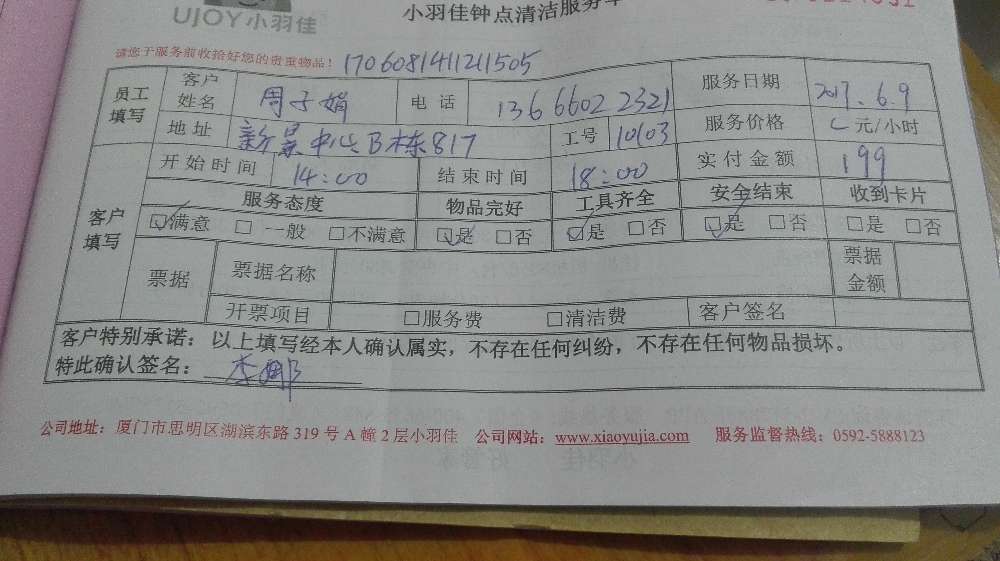 UJOY小羽佳
小羽佳钟点清洁服务单
请您于服务前收拾好您的贵重物品！ 1706081411211505
员工填写 客户姓名 周子娟 电话 13666022321 服务日期 2017.6.9
地址 新景中心B栋817 工号 10103 服务价格 元/小时
客户填写 开始时间 14:00 结束时间 18:00 实付金额 199
服务态度 物品完好 工具齐全 安全结束 收到卡片
☑满意 □一般 □不满意 ☑是 □否 ☑是 □否 ☑是 □否 □是 □否
票据 票据名称 票据金额
开票项目 □服务费 □清洁费 客户签名
客户特别承诺：以上填写经本人确认属实，不存在任何纠纷，不存在任何物品损坏。
特此确认签名：李娜
公司地址：厦门市思明区湖滨东路319号A幢2层小羽佳 公司网站：www.xiaoyujia.com 服务监督热线：0592-5888123